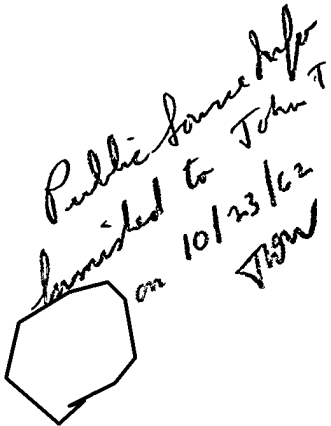 Public Source Info
furnished to John T
on 10/23/62